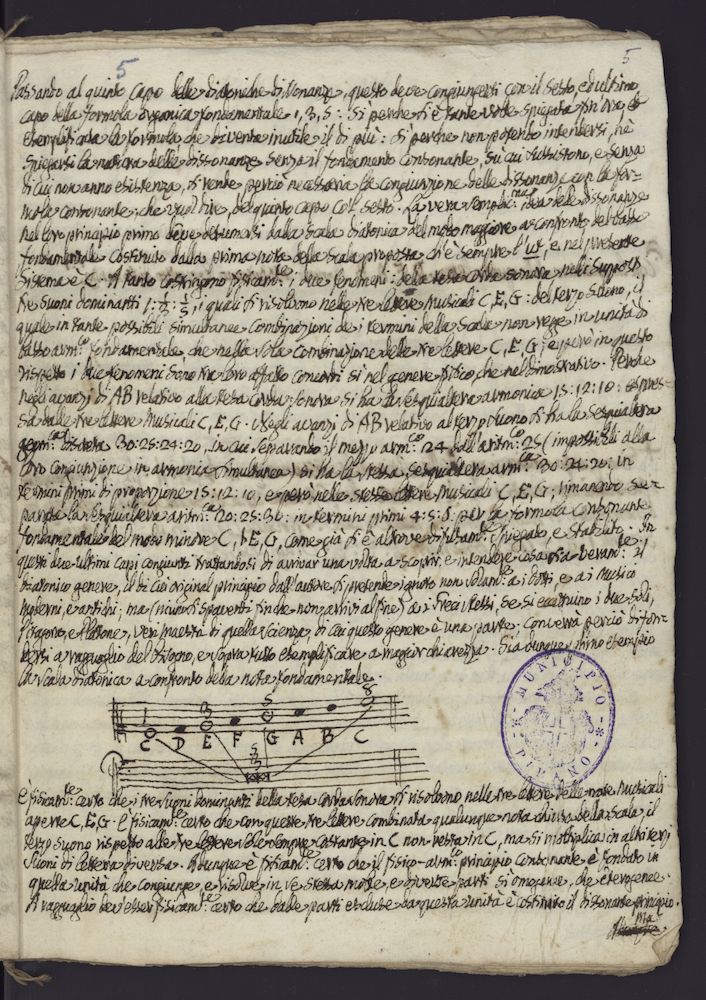 5
5
Passando al quinto Capo delle diatoniche dissonanze, questo deve congiungersi con il sesto, ed ultimo
capo della formola organica fondamentale 1, 3, 5: Sì perche si è tante volte spiegata fin ora, ed
esemplificata la formola che diventa inutile il di più: sì perche non potendo intendersi, nè
spiegarsi la natura delle dissonanze senza il fondamento Consonante, su cui sussistono, e senza
di cui non anno esistenza, si rende perciò necessaria la Congiunzione delle dissonanze con la for-
mola consonante; che vuol dire, del quinto Capo col sesto. La vera idea delle dissonanze
nel loro principio primo deve desumersi dalla Scala diatonica del modo maggiore a confronto del basso
fondamentale costituito dalla prima nota della Scala proposta ch'è sempre l'ut, e nel presente
Sistema è C. A tanto costringono fisicam.te i due fenomeni: della tesa corda sonora nelli suppost
tre suoni dominanti 1: 1/3: 1/5, i quali si risolvono nelle tre lettere Musicali C, E, G: del terzo Suono, il
quale in tante possibili simultanee Combinazioni de i termini della Scala non regge in unità di
basso arm.co fondamentale che nella sola Combinazione delle tre lettere C, E, G; e però in questo
rispetto i due fenomeni sono tra loro affatto concordi sì nel genere fisico, che nel dimostrativo. Perche
negli avanzi di AB relativo alla tesa Corda sonora si ha la sesquialtera armonica 15: 12: 10: espres-
sa dalle tre lettere Musicali C, E, G. Negli avanzi di AB relativo al terzo suono si ha la sesquialtera
geom.ca discreta 30: 25: 24: 20, in cui separando il mezzo arm.co 24 dall'aritm.co 25 (impossibili alla
loro congiunzione in armonia simultanea) si ha la stessa sesquialtera arm.ca 30: 24: 20: in
termini primi di proporzione 15: 12: 10, e però nelle stesse lettere Musicali C, E, G, rimanendo se-
parata la sesquialtera aritm.ca 20: 25: 30: in termini primi 4: 5: 6 per la formola Consonante
fondamentale del modo minore C, bE, G, come già si è altrove spiegato e stabilito. In
questi due ultimi Capi congiunti trattandosi di arrivar una volta a scoprir e intendere cosa sia veram.te il
diatonico genere, il di cui original principio dall'autore si pretende ignoto non solam.te a i dotti, e a i Musici
Moderni, e antichi; ma (niuno si spaventi finche non arrivi al fine) a i Greci stessi, se si eccettuino i due soli,
Pitagora, e Platone, veri maestri di quella Scienza, di cui questo genere è una parte. Converrà perciò disten-
dersi a ragguaglio del bisogno, e sopra tutto esemplificare a maggior chiarezza. Sia dunque primo esempio
la Scala diatonica a confronto della nota fondamentale.
1 3 5 8
C D E F G A B C
5
3
MUNICIPIO
PIRANO
È fisicam.te certo che i tre suoni dominanti della tesa corda sonora si risolvono nelle tre lettere delle note Musicali
aperte C, E, G. È fisicam.te certo che con queste tre lettere combinata qualunque nota chiusa della Scala, il
terzo suono rispetto alle tre lettere costante in C non resta in C, ma si moltiplica in altri terzi
suoni di lettera diversa. Adunque è fisicam.te certo che il fisico-arm.co principio consonante è fondato in
quella unità che congiunge, e risolve in se stessa molte, e diverse parti sì omogenee, che eterogenee.
A ragguaglio dev'esser fisicam.te certo che dalle parti escluse da questa unità è costituito il dissonante principio.
Ma